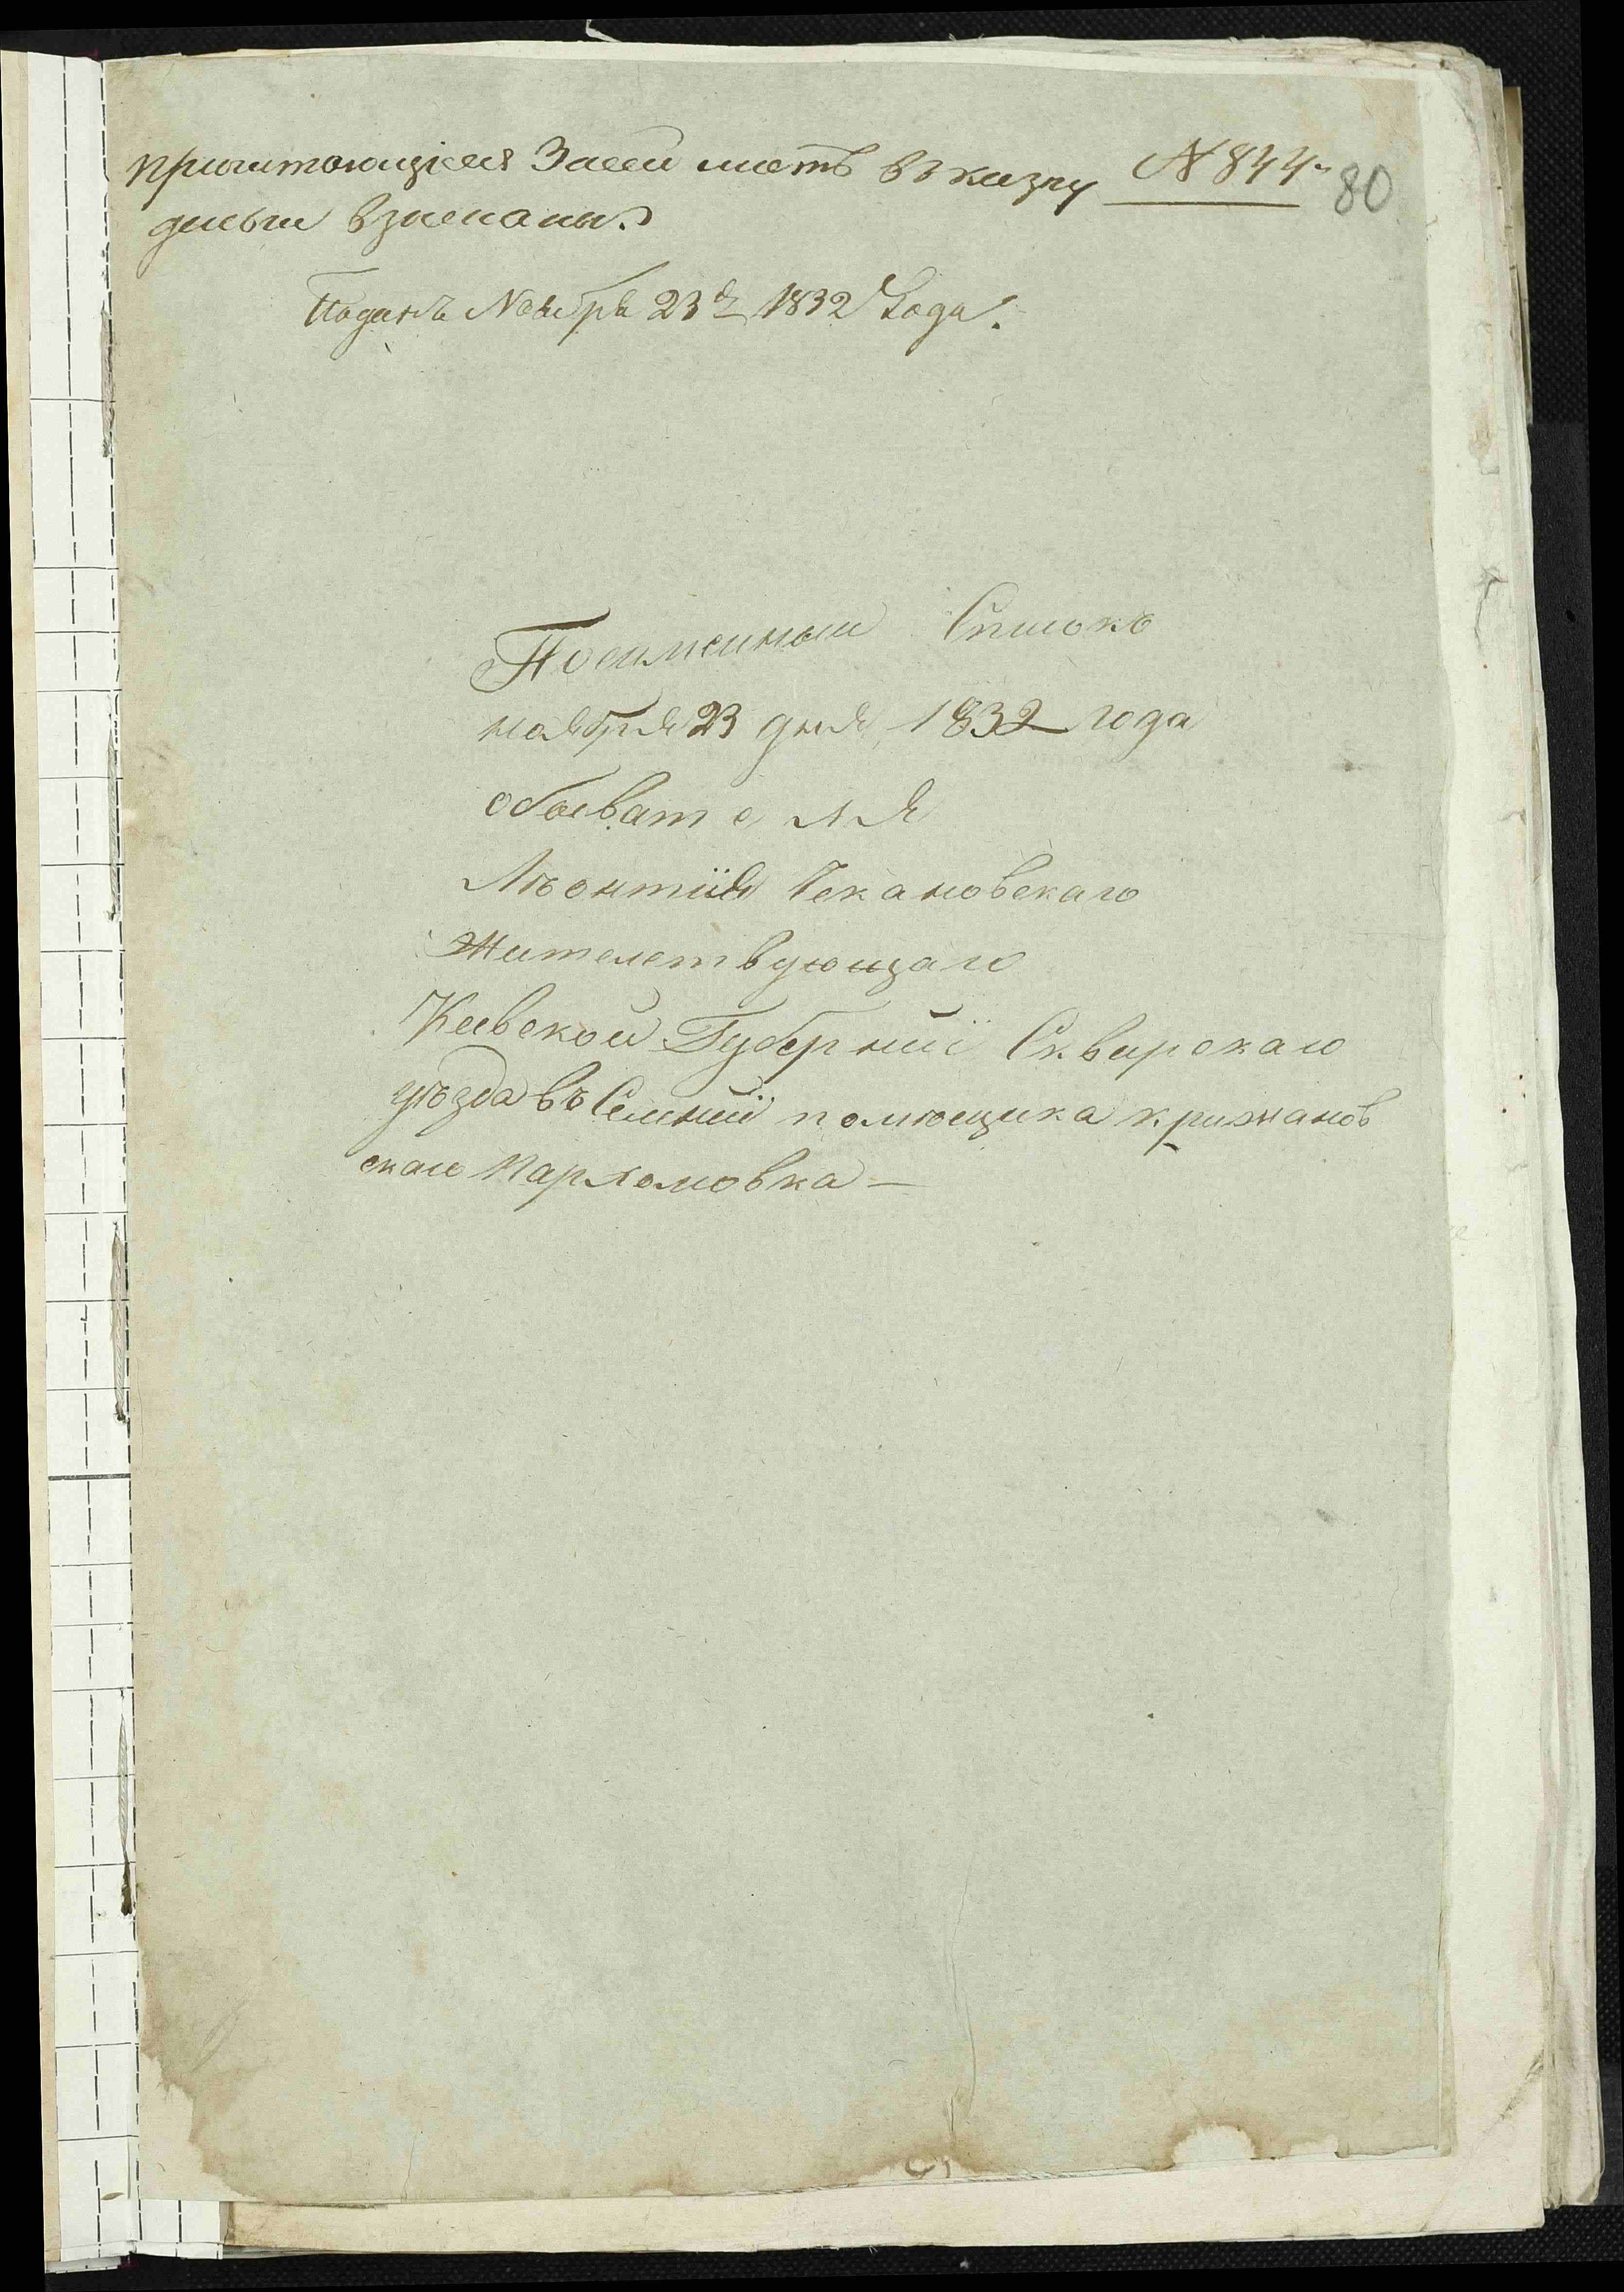 причитающiеся За сей листъ въ казну № 844й 80
деньги взысканы.
Поданъ Ноября 23го 1832 Года.
Поеименный Списокъ
ноября 23 дня 1832 года
обывателя
Лѣонтiя Чекановскаго
Жителствующаго
Киевской Губернiи Сквирскаго
уѣзда въ Селенiи помющика крижанов
скаго Пархомовка —